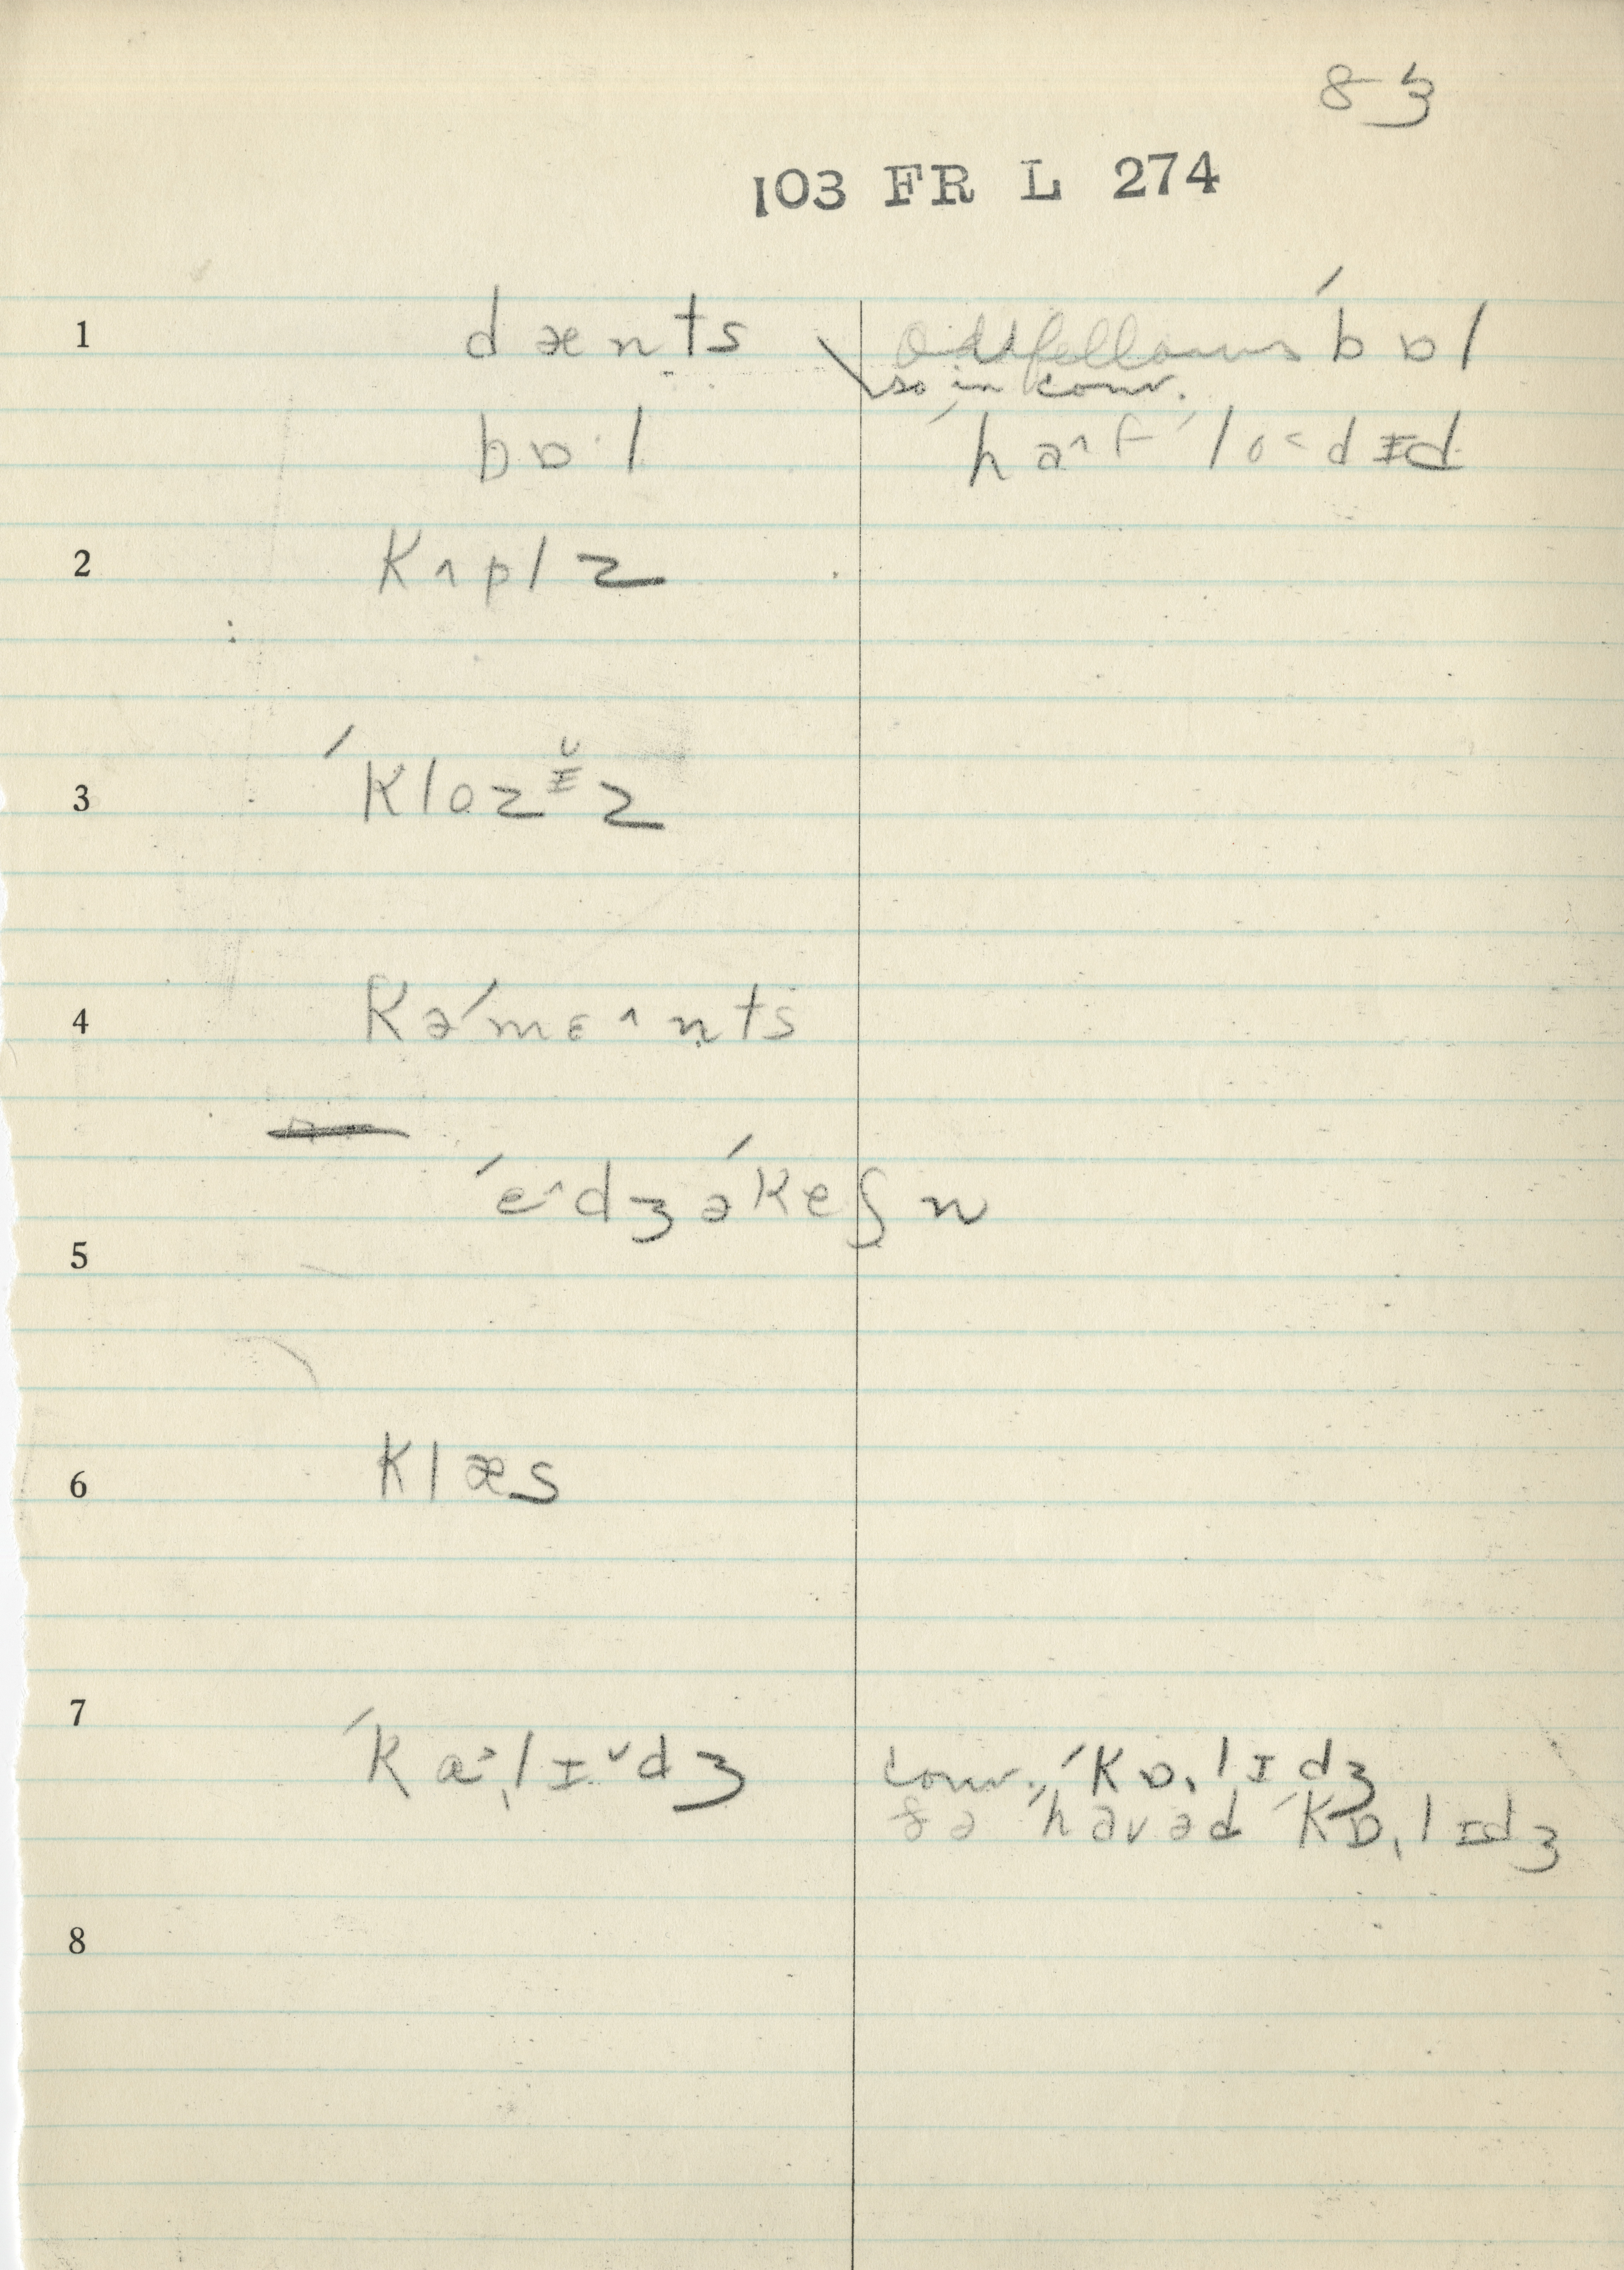 83
103 FR L 274
1 dænts Oddfellows ˈbɒl
so in conv.
bɒ·l ˈhaˆf ˈlo˂dɪd
2 kʌplz
3 ˈklozɪ̆z
4 kəˈmɛˆnts
ˈeˆdʒəˈkeʃn
5
6 klæs
7 ˈkɑ˃ˌlɪˇdʒ conv. ˈkɒˌlɪdʒ
ðə ˈhavəd ˈkɒˌlɪdʒ
8